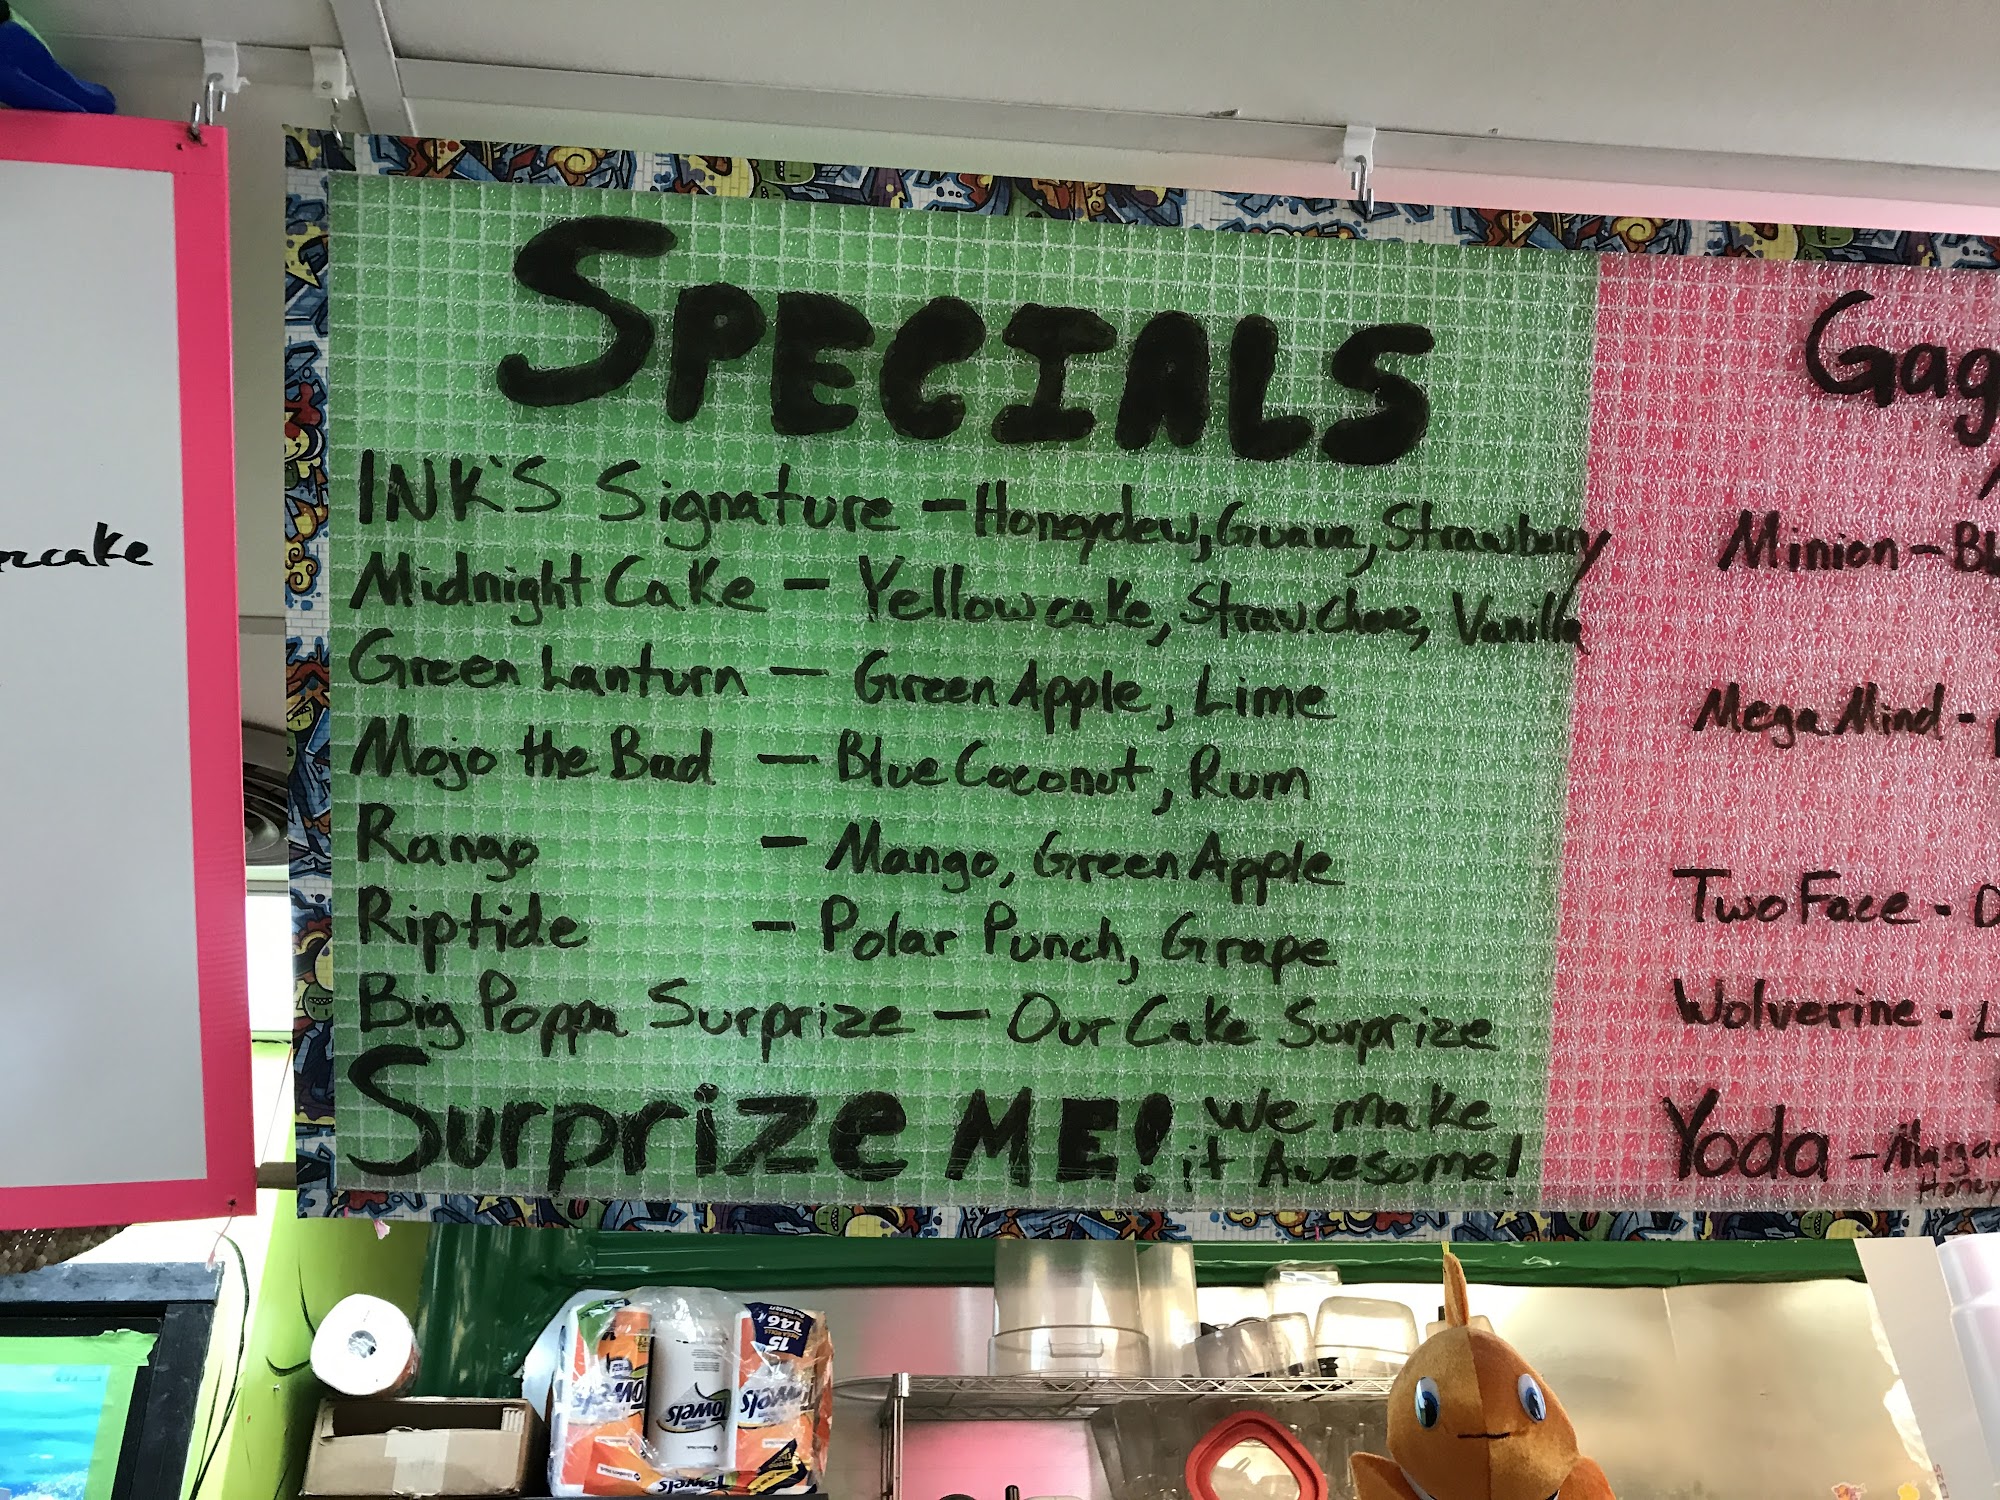 SPECIALS
INK'S Signature - Honeydew, Guava, Strawberry
Midnight Cake - Yellow cake, Straw. Cheez, Vanilla
Green Lanturn - Green Apple, Lime
Mojo the Bad - Blue Coconut, Rum
Rango - Mango, Green Apple
Riptide - Polar Punch, Grape
Big Poppa Surprize - Our Cake Surprize
Surprize ME! We make
it Awesome!
Minion -
Mega Mind -
Two Face -
Wolverine -
Yoda -
Towels
Towels
Towels
15
146